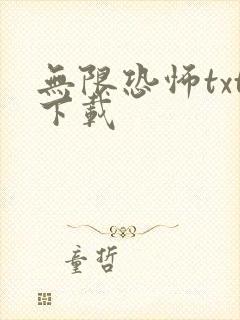 無限恐怖txt
下載
童哲